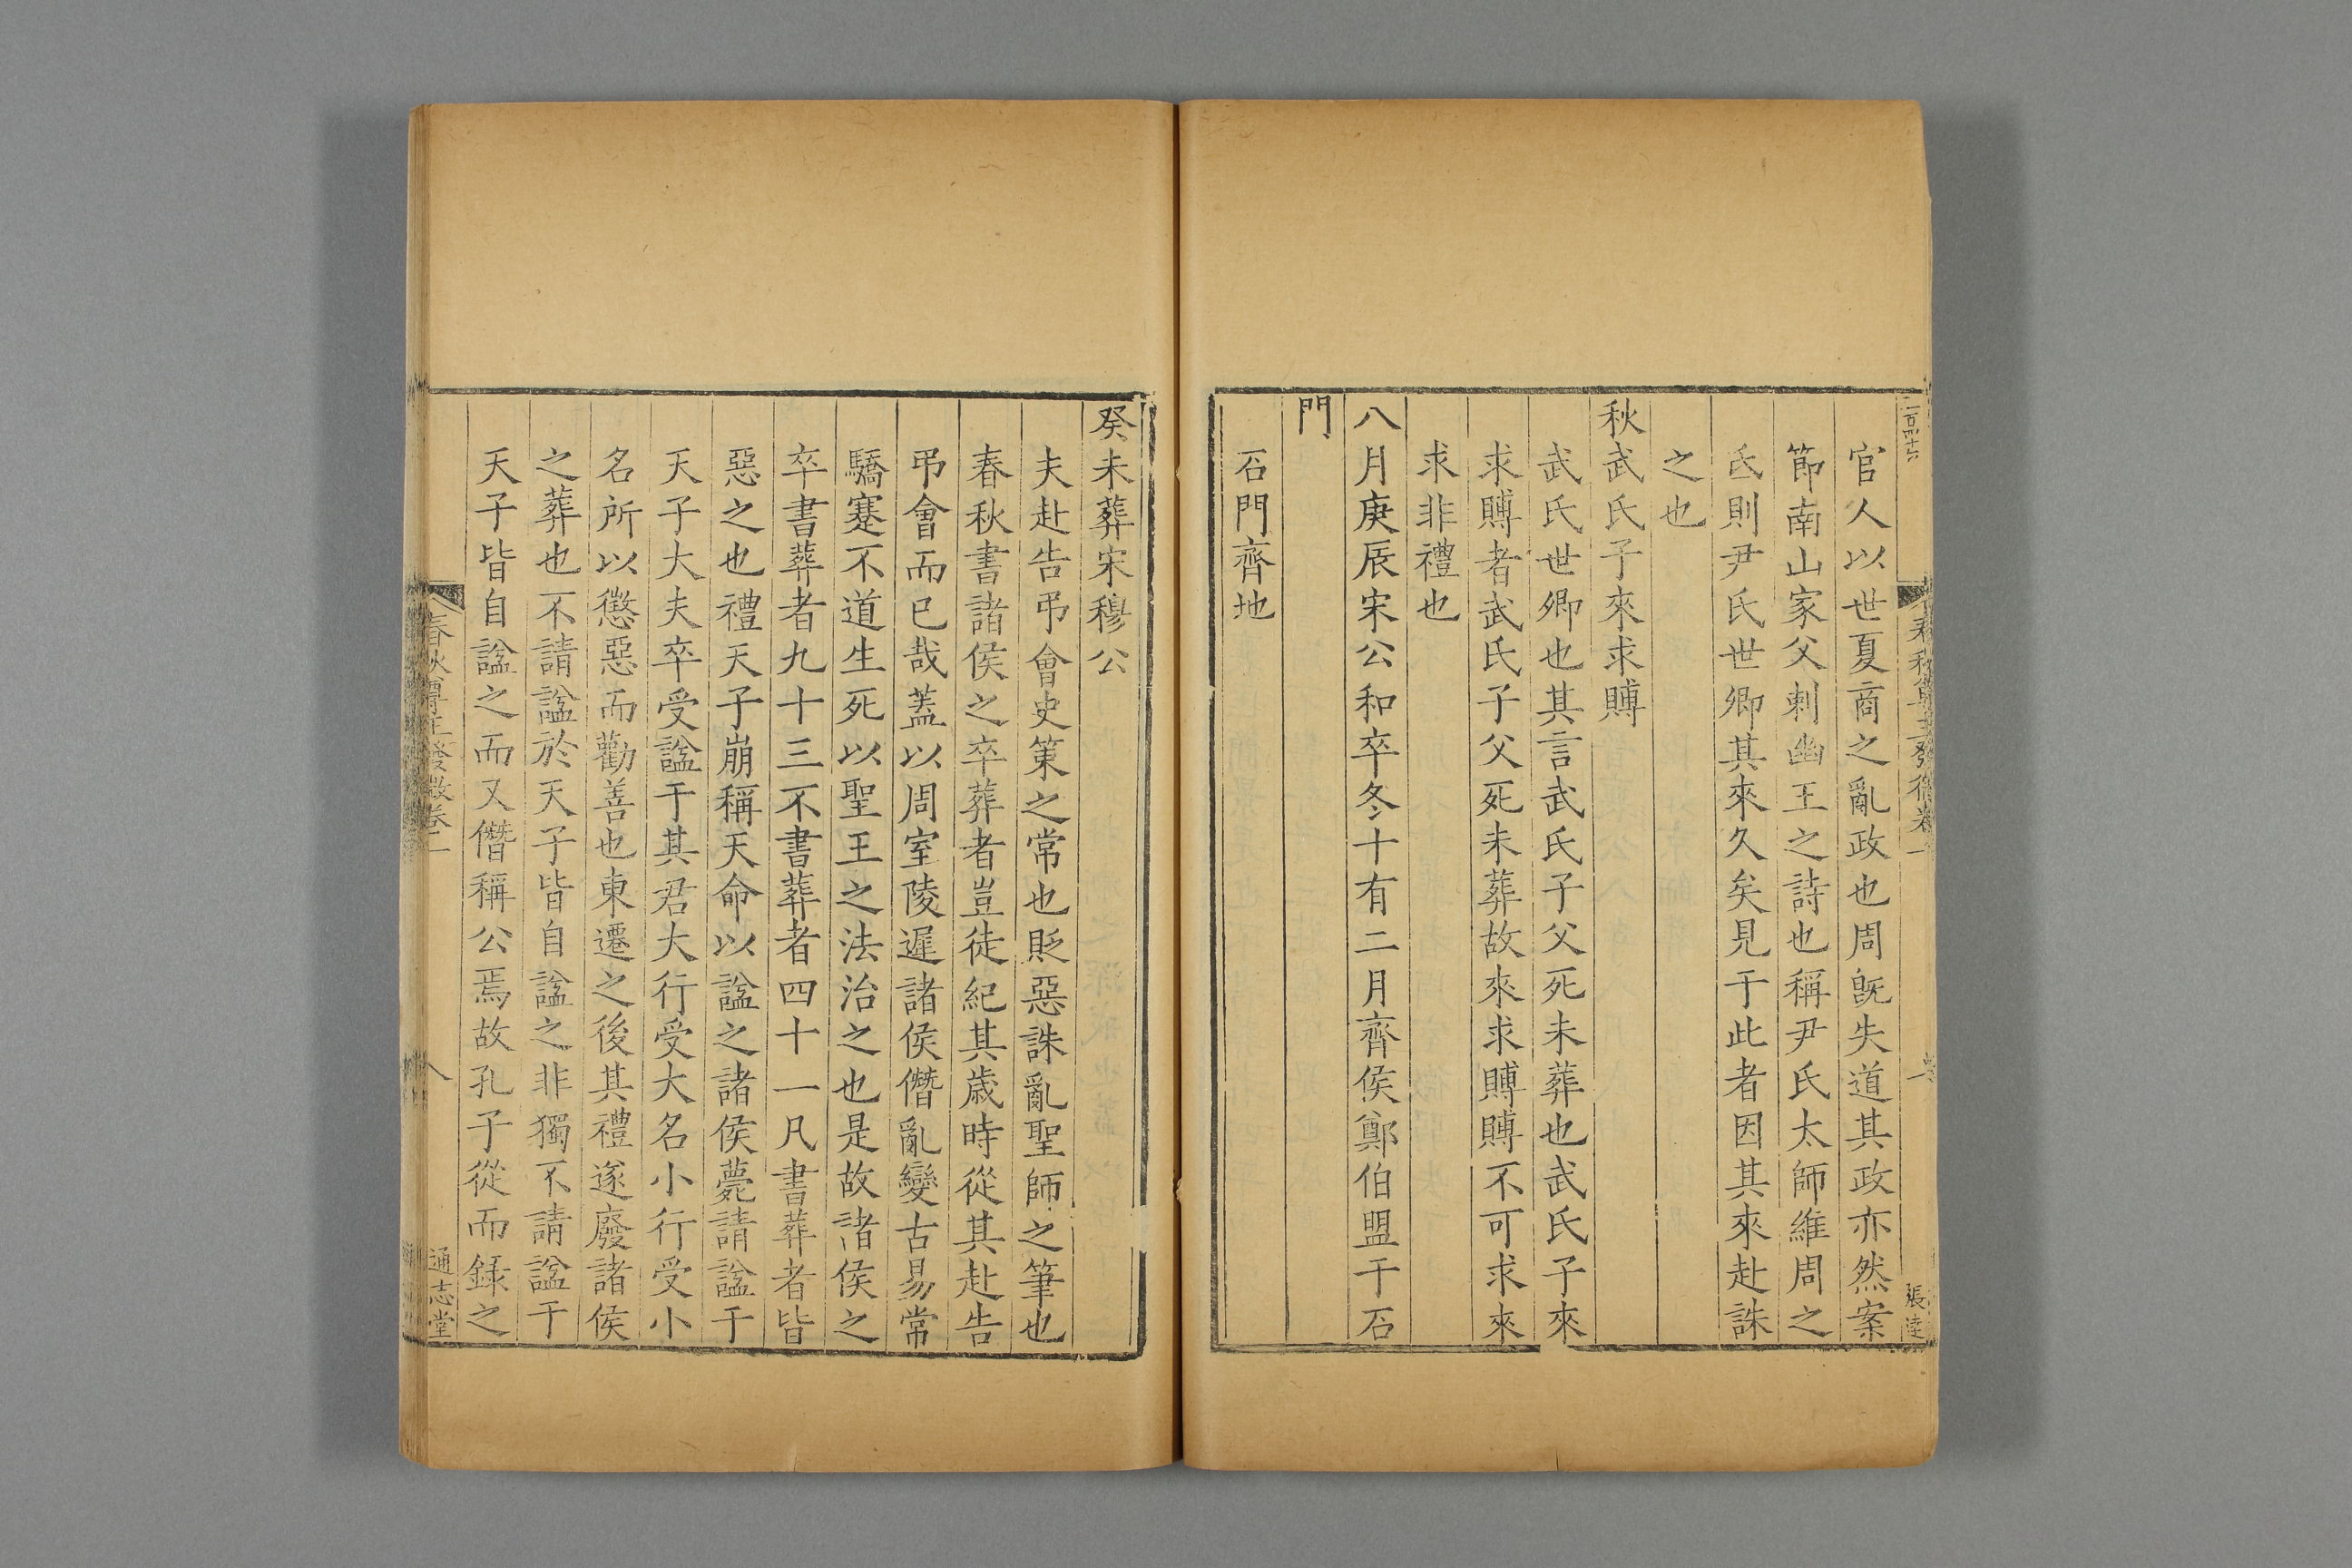 官人以世夏商之亂政也周旣失道其政亦然案
節南山家父刺幽王之詩也稱尹氏太師維周之
氐則尹氏世卿其來久矣見于此者因其來赴誅
之也
秋武氏子來求賻
武氏世卿也其言武氏子父死未葬也武氏子來
求賻者武氏子父死未葬故來求賻賻不可求來
求非禮也
八月庚辰宋公和卒冬十有二月齊侯鄭伯盟于石
門
石門齊地
癸未葬宋穆公
夫赴告弔會史策之常也貶惡誅亂聖師之筆也
春秋書諸侯之卒葬者豈徒紀其歲時從其赴告
弔會而已哉蓋以周室陵遲諸侯僭亂變古易常
驕蹇不道生死以聖王之法治之也是故諸侯之
卒書葬者九十三不書葬者四十一凡書葬者皆
惡之也禮天子崩稱天命以諡之諸侯薨請諡于
天子大夫卒受諡于其君大行受大名小行受小
名所以懲惡而勸善也東遷之後其禮遂廢諸侯
之葬也不請諡於天子皆自諡之非獨不請諡于
天子皆自諡之而又僭稱公焉故孔子從而錄之
春秋尊王發微卷一
八
通志堂